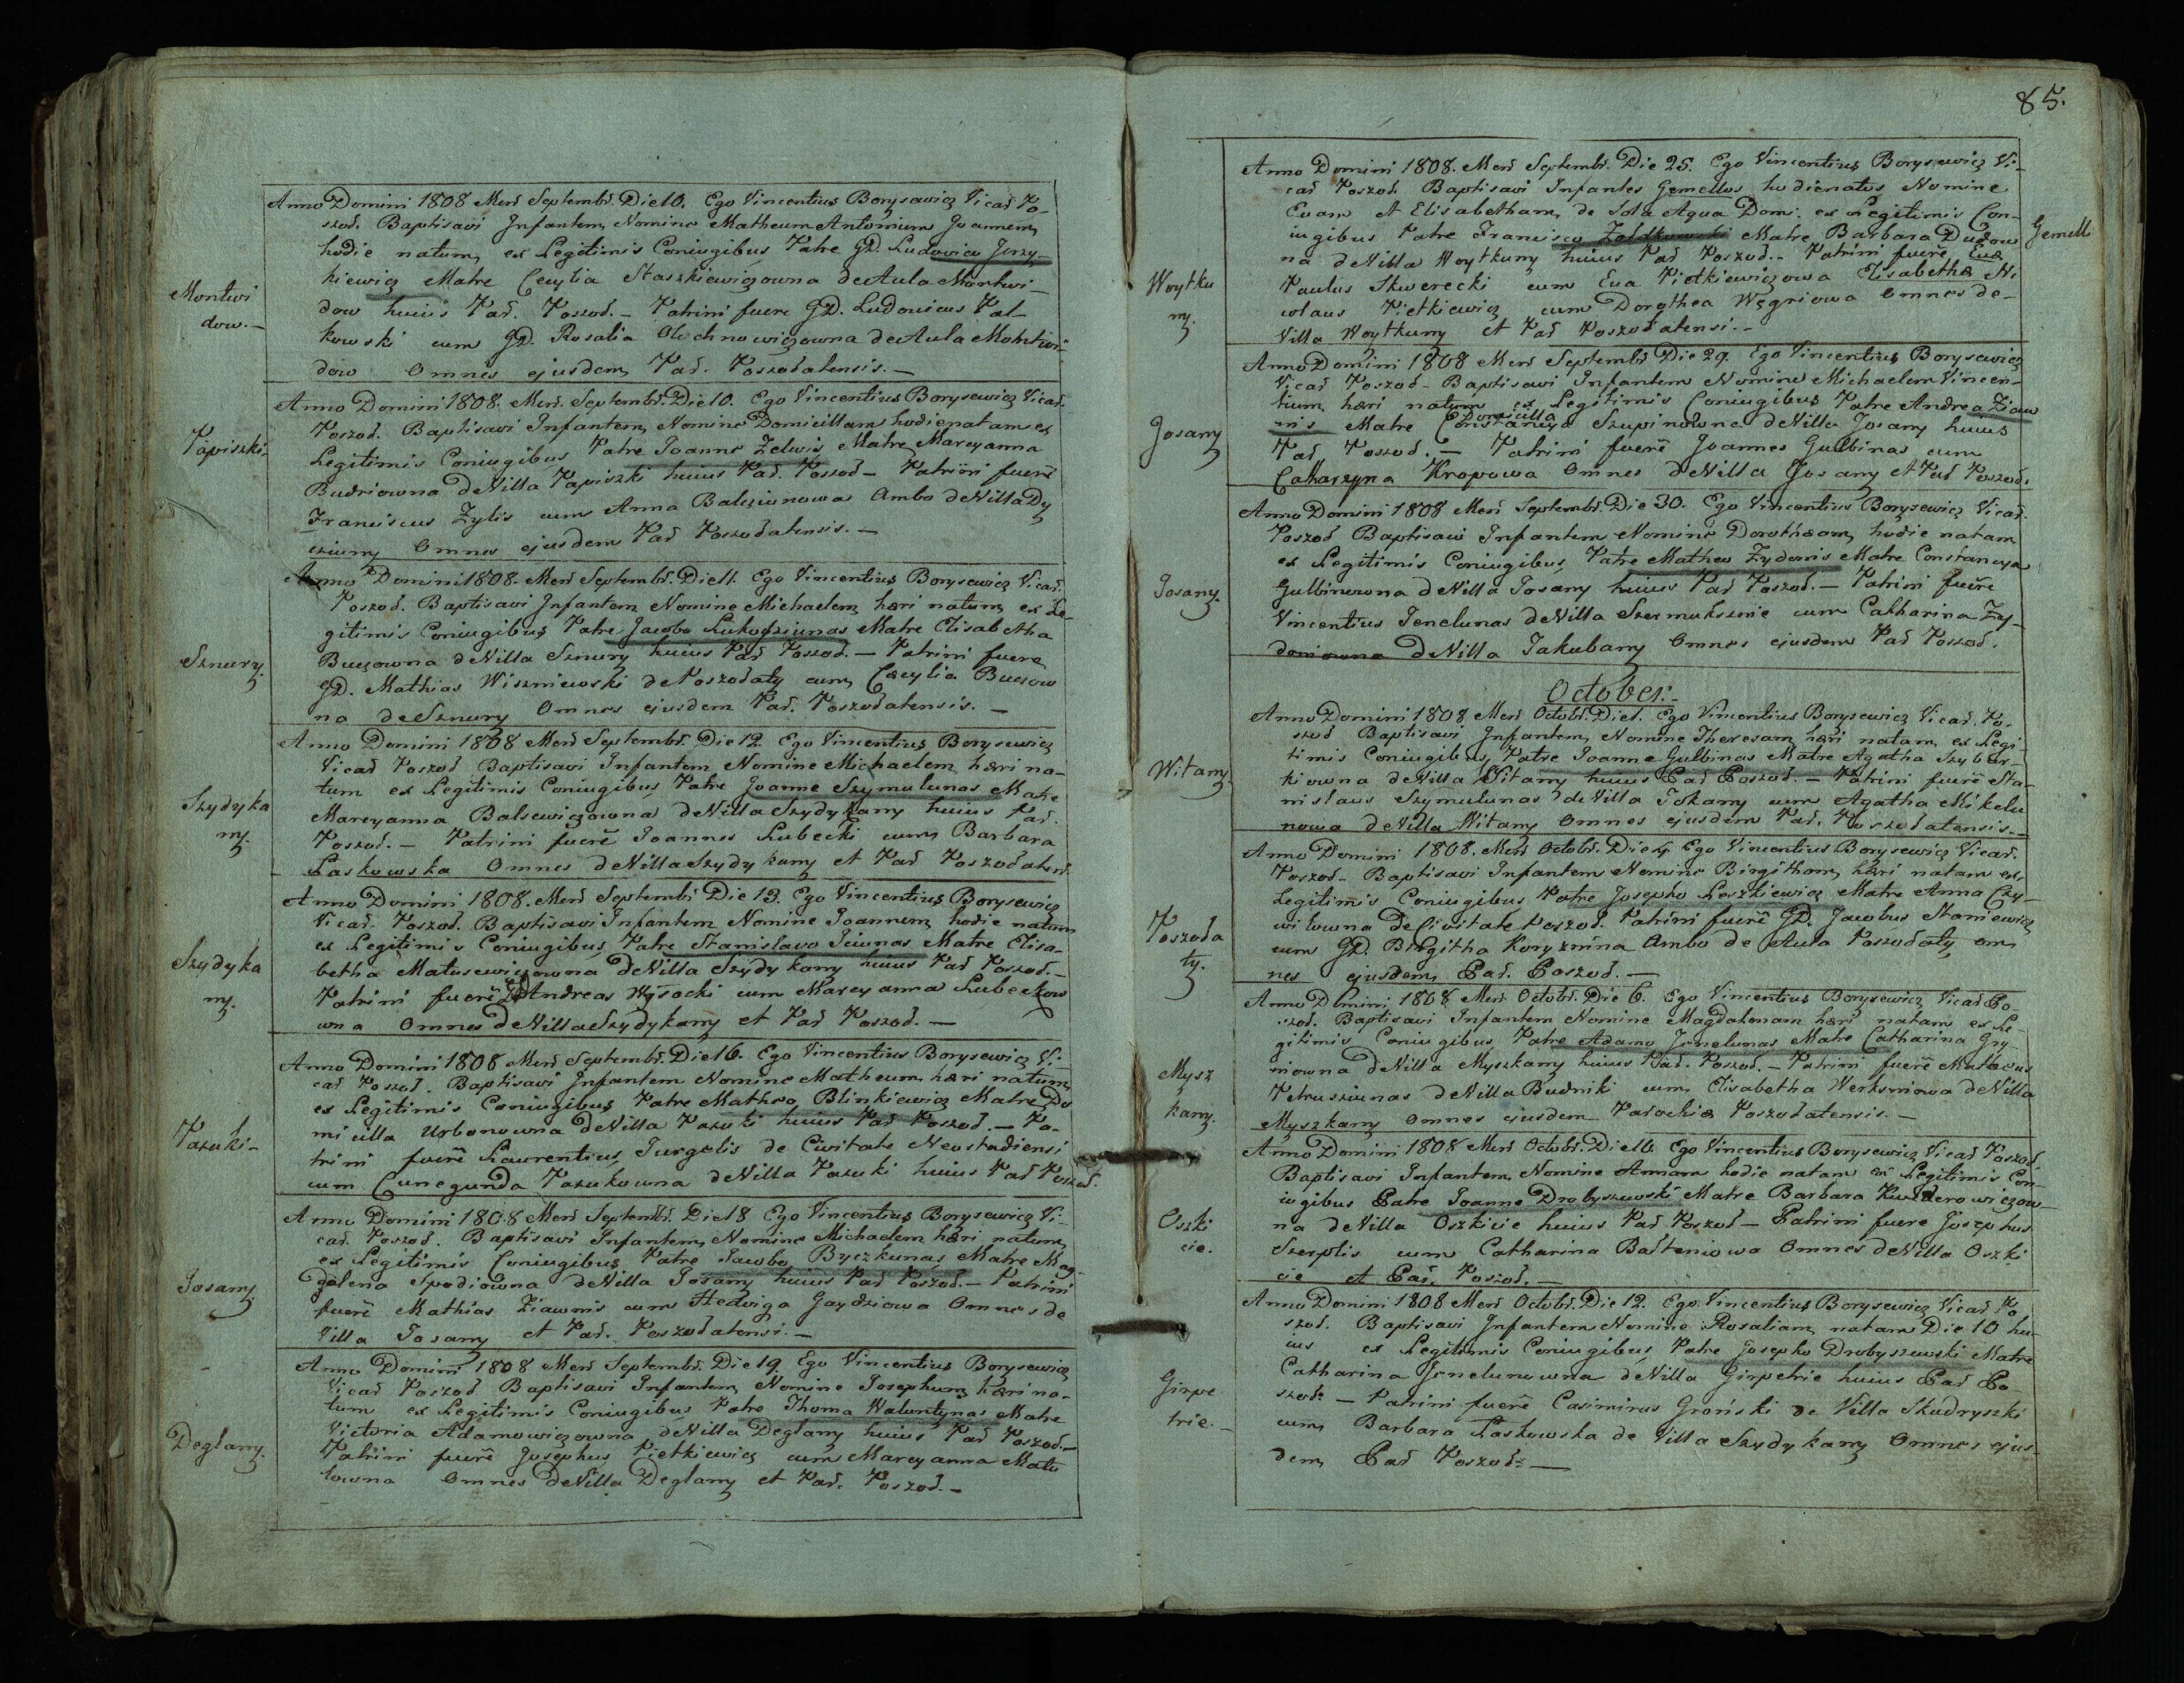 Anno Domini 1808 Mens Septembr. Die 10. Ego Vincentius Borysewicz Vicar Po-
szod. Baptisavi Infantem, Nomine Matheum Antonium Joannem,
hodie natum, ex Legitimis Coniugibus Patre GD. Ludovico Jerzy-
kiewicz Matre Cecylia Staszkiewiczowna de Aula Montwi-
dow huius Par. Poszod. - Patrini fuere GD. Ludovicus Pal-
kowski cum GD. Rosalia Olechnowiczowna de Aula Montwi-
dow Omnes ejusdem Par. Poszodatensis. -
Montwi
dow. -
Anno Domini 1808. Mens. Septembr. Die 10. Ego Vincentius Borysewicz Vicar.
Poszod. Baptisavi Infantem, Nomine Domicillam hodie natam ex
Legitimis Coniugibus Patre Joanne Zelwis Matre Maryanna
Budriowna de Villa Papiszki huius Par. Poszod - Patrini fuere
Franciscus Zylis cum Anna Balcziunowa Ambo de Villa Dy
cziuny Omnes ejusdem Par Poszodatensis. -
Papiszki.
Anno Domini 1808. Mens Septembr. Die 11. Ego Vincentius Borysewicz Vicar.
Poszod. Baptisavi Infantem Nomine Michaelem hæri natum, ex Le-
gitimis Coniugibus Patre Jacobo Lukodziunas Matre Elisabetha
Buczowna de Villa Sznury huius Par Poszod. - Patrini fuere
GD. Mathias Wiszniewski de Poszodaty cum Cæcylia Buczow
na de Sznury Omnes ejusdem Par. Poszodatensis. -
Sznury.
Anno Domini 1808 Mens Septembr. Die 12. Ego Vincentius Borysewicz
Vicar Poszod Baptisavi Infantem Nomine Michaelem hæri na-
tum ex Legitimis Coniugibus Patre Joanne Szymulunas Matre
Maryanna Balsewiczowna de Villa Szydykany huius Par.
Poszod. - Patrini fuere Joannes Lubecki cum Barbara
Laskowska Omnes de Villa Szydykany et Par Poszodatens.
Szydyka
ny.
Anno Domini 1808. Mens Septembr Die 13. Ego Vincentius Borysewicz
Vicar. Poszod. Baptisavi Infantem Nomine Joannem, hodie natum
ex Legitimis Coniugibus, Patre Stanislavo Jciunas Matre Elisa-
betha Matusewiczowna de Villa Szydykany huius Par Poszod. -
Patrini fuere GD Andreas Wysocki cum Maryanna Lubeckow
wna Omnes de Villa Szydykany et Par Poszod. -
Szydyka
ny.
Anno Domini 1808 Mens Septembr. Die 16. Ego Vincentius Borysewicz Vi-
car Poszod. Baptisavi Infantem Nomine Matheum, hæri natum
ex Legitimis Coniugibus Patre Matheo Blinkiewicz Matre Do
micilla Urbonowna de Villa Pazuki huius Par Poszod. - Pa-
trini fuere Laurentius Jurgelis de Civitate Neostadiensi
cum Cunegunda Pazukowna de Villa Pazuki huius Par Poszod.
Pazuki -
Anno Domini 1808 Mens Septembr. Die 18 Ego Vincentius Borysewicz Vi-
car. Poszod. Baptisavi Infantem, Nomine Michaelem hæri natum,
ex Legitimis Coniugibus, Patre Jacobo Byczkunas Matre Mag-
dalena Spodiowna de Villa Josany huius Par Poszod. - Patrini
fuere Mathias Ziawnis cum Hedwiga Gaydziowa Omnes de
Villa Josany et Par. Poszodatensi. -
Josany
Anno Domini 1808 Mens Septembr. Die 19 Ego Vincentius Borysewicz
Vicar Poszod Baptisavi Infantem, Nomine Josephum, hæri na-
tum ex Legitimis Coniugibus, Patre Thoma Waluntynas Matre
Victoria Adamowiczowna de Villa Deglany huius Par Poszod. -
Patrini fuere Josephus Pietkiewicz cum Maryanna Matu
lowna Omnes de Villa Deglany et Par. Poszod. -
Deglany.
85.
Anno Domini 1808. Mens Septembr. Die 25. Ego Vincentius Borysewicz Vi-
car Poszod. Baptisavi Infantes Gemellos hodie natos Nomine
Evam et Elisabetham, de Sola Aqua Domi. ex Legitimis Con-
iugibus Patre Francisco Zoldkowski Matre Barbara Dudow
na de Villa Woytkuny huius Par Poszod. - Patrini fuere Evæ
Paulus Skwerecki cum Eva Pietkiewiczowa Elisabethæ Ni
colaus Pietkiewicz cum Dorothea Węgriowa Omnes de-
Villa Woytkuny et Par Poszodatensi. -
Gemelli
Woytku
ny.
Anno Domini 1808 Mens Septembr Die 29. Ego Vincentius Borysewicz
Vicar Poszod - Baptisavi Infantem Nomine Michaelem Vincen-
tium, hæri natum ex Legitimis Coniugibus Patre Andrea Ziaw
nis Matre Domicilla Constancya Szupinowna de Villa Josany huius
Par Poszod. - Patrini fuere Joannes Gulbinas cum
Catharzyna Kropowa Omnes de Villa Josany et Par Poszod.
Josany
Anno Domini 1808 Mens Septembr. Die 30. Ego Vincentius Borysewicz Vicar.
Poszod Baptisavi Infantem Nomine Dorotheam, hodie natam
ex Legitimis Coniugibus, Patre Matheo Zydonis Matre Constancya
Gulbinowna de Villa Josany huius Par Poszod. - Patrini fuere
Vincentius Jenelunas de Villa Szermuksznie cum Catharina Zy-
doniowna de Villa Jakubany Omnes ejusdem Par Poszod.
Josany.
October. -
Anno Domini 1808 Mens Octobr. Die 1. Ego Vincentius Borysewicz Vicar. Po-
szod Baptisavi Infantem, Nomine Theresam hæri natam, ex Legi-
timis Coniugibus, Patre Joanne Gulbinas Matre Agatha Szybur-
kiowna de Villa Witany huius Par Poszod. - Patrini fuere Sta-
nislaus Szymulunas de Villa Tokany cum Agatha Mikelu
nowa de Villa Witany Omnes ejusdem Par. Poszodatensis. -
Witany
Anno Domini 1808. Mens Octobr. Die 4 Ego Vincentius Borysewicz Vicar.
Poszod - Baptisavi Infantem Nomine Birgitham, hæri natam ex
Legitimis Coniugibus Patre Josepho Leszkiewicz Matre Anna Czy-
wilowna de Civitate Poszod. Patrini fuere GD. Jacobus Staniewicz
cum GD. Birgitha Koryznina Ambo de Aula Poszodaty om
nes ejusdem, Par. Poszod. -
Poszoda
ty.
Anno Domini 1808 Mens Octobr. Die 6. Ego Vincentius Borysewicz Vicar Po-
szod. Baptisavi Infantem Nomine Magdalenam hæri natam ex Le-
gitimis Coniugibus, Patre Adamo Jenelunas Matre Catharina Gry-
niowna de Villa Myszkany huius Par. Poszod. - Patrini fuere Mataeus
Petrusziunas de Villa Budniki cum, Elisabetha Werksniowa de Villa
Myszkany Omnes ejusdem Parochiæ Poszodatensis. -
Mysz
kany.
Anno Domini 1808 Mens Octobr. Die 10. Ego Vincentius Borysewicz Vicar Poszod.
Baptisavi Infantem, Nomine Annam hodie natam ex Legitimis Con-
iugibus Patre Joanne Drobyszewski Matre Barbara Kunderowiczow-
na de Villa Oszkicie huius Par Poszod - Patrini fuere Josephus
Szerplis cum Catharina Balteniowa Omnes de Villa Oszki
cie et Par. Poszod. -
Oszki
cie.
Anno Domini 1808 Mens Octobr. Die 12. Ego Vincentius Borysewicz Vicar Po
szod. Baptisavi Infantem Nomine Rosaliam, natam Die 10 hu-
ius ex Legitimis Coniugibus, Patre Josepho Drobyszewski Matre
Catharina Jenelunowna de Villa Girpetrie huius Par Po-
szod. - Patrini fuere Casimirus Groński de Villa Skudryszki
cum, Barbara Laskowska de Villa Szydykany Omnes ejus-
dem, Par Poszod: -
Girpe
trie. -